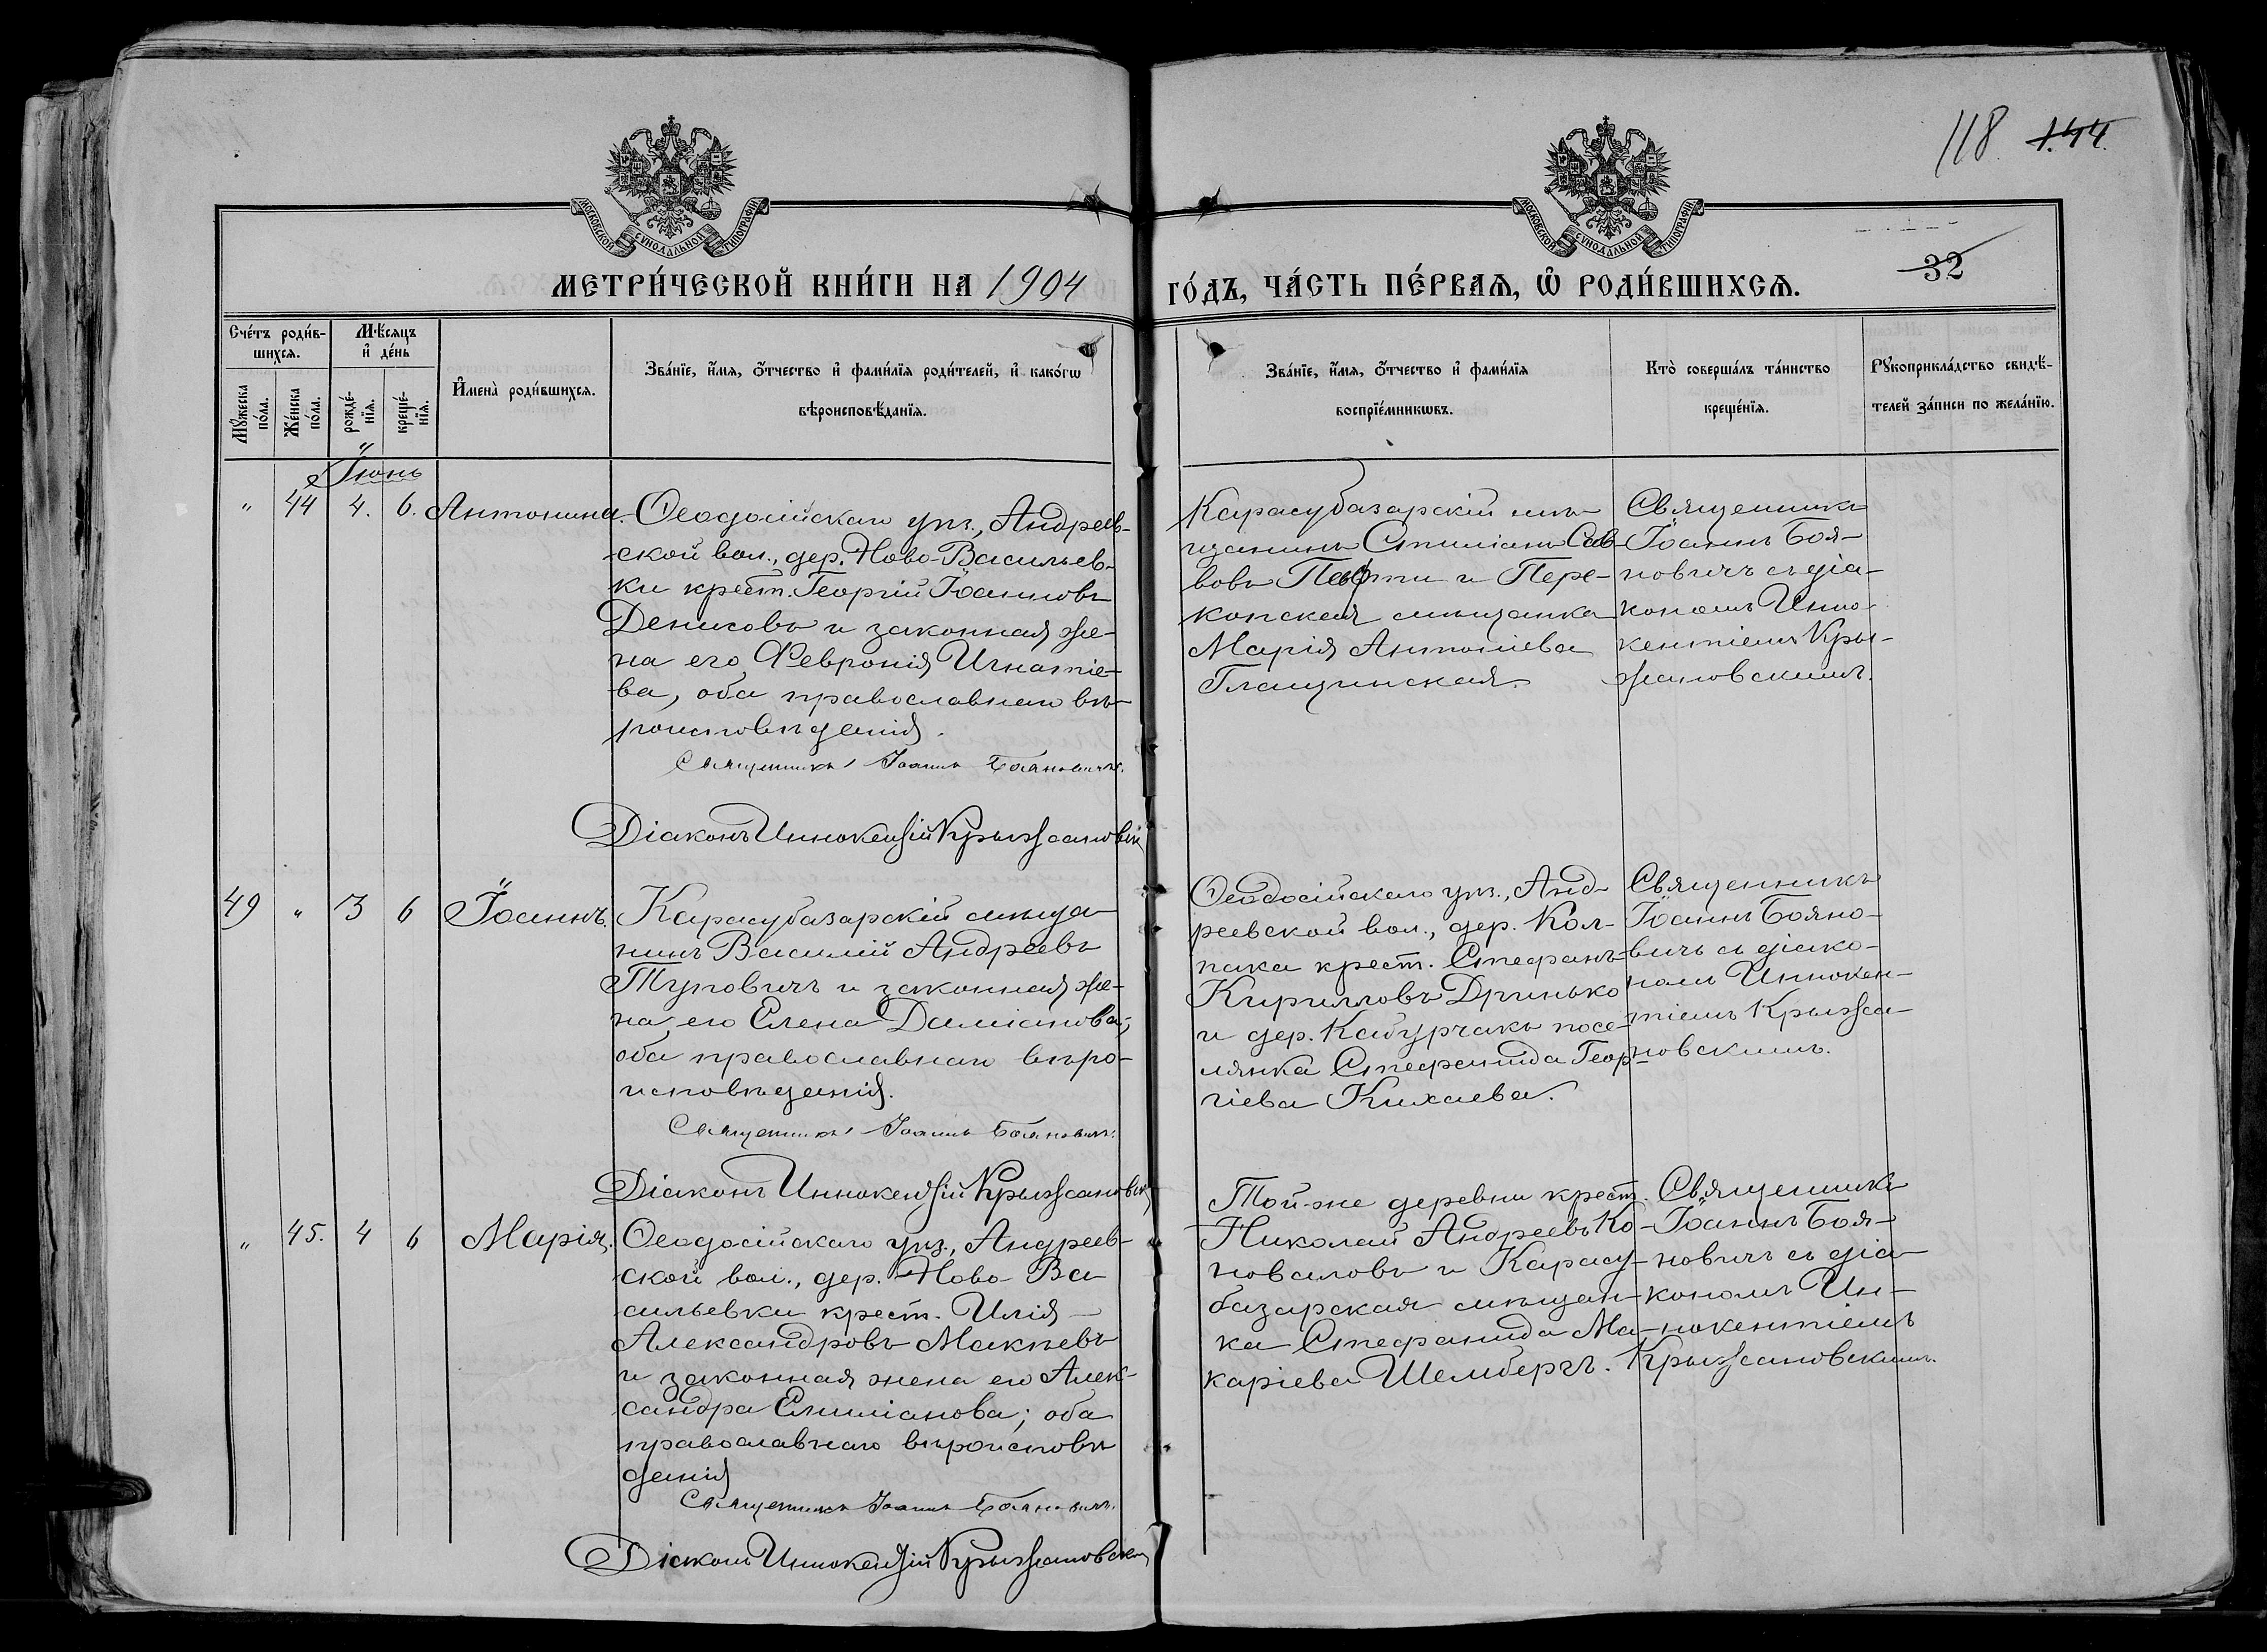 118 144
МОСКОВСКОЙ СѴНОДАЛЬНОЙ ТИПОГРАФІИ
МОСКОВСКОЙ СѴНОДАЛЬНОЙ ТИПОГРАФІИ
32
МЕТРИ́ЧЕСКОЙ КНИ́ГИ НА 1904
ГО́ДЪ, ЧА́СТЬ ПЕ́РВАѦ, Ѡ҆ РОДИ́ВШИХСѦ.
Сче́тъ роди́в-
шихсѧ.
Мꙋ́жеска по́ла.
Же́нска по́ла.
Мѣ́сѧцъ и҆ де́нь
рожде́-
нїѧ.
креще́-
нїѧ.
И҆мена̀ роди́вшихсѧ.
Зва́нїе, и҆́мѧ, ѻ҆́тчество и҆ фами́лїѧ роди́телей, и҆ како́гѡ
вѣроисповѣ́данїѧ.
Зва́нїе, и҆́мѧ, ѻ҆́тчество и҆ фами́лїѧ
воспрїе́мникѡвъ.
Кто̀ соверша́лъ та́инство
креще́нїѧ.
Рꙋкоприкла́дство свидѣ́-
телей за́писи по жела́нїю.
Іюнь
" 44 4. 6. Антонина.
Ѳеодосійскаго уѣз., Андреев-
ской вол., дер. Ново-Васильев-
ки крест. Георгій Іоанновъ
Денисовъ и законная же-
на его Февронія Игнатіе-
ва, оба православнаго вѣ-
роисповѣданія.
Священникъ Іоаннъ Бояновичъ.
Діаконъ Иннокентій Крыжановскій
Карасубазарскій мѣ-
щанинъ Стиліанъ Сав-
вовъ и Пере-
копская мѣщанка
Марія Антоніева
Глащинская.
Священникъ
Іоаннъ Боя-
новичъ съ діа-
кономъ Инно-
кентіемъ Кры-
жановскимъ.
49 " 3 6 Іоаннъ.
Карасубазарскій мѣща-
нинъ Василій Андреевъ
Туповичъ и законная же-
на его Елена Даміанова;
оба православнаго вѣро-
исповѣданія.
Священникъ Іоаннъ Бояновичъ.
Діаконъ Иннокентій Крыжановск
Ѳеодосійскаго уѣз., Анд-
реевской вол., дер. Кол-
пака крест. Стефанъ
Кирилловъ Дринько
и дер. Кабурчакъ посе-
лянка Стефанида Геор-
гіева Кихаева.
Священникъ
Іоаннъ Бояно-
вичъ съ діако-
номъ Иннокен-
тіемъ Крыжа-
новскимъ.
" 45. 4 6 Марія.
Ѳеодосійскаго уѣз., Андреев-
ской вол., дер. Ново-Ва-
сильевки крест. Илія
Александровъ Макѣевъ
и законная жена его Алек-
сандра Емиліанова; оба
православнаго вѣроисповѣ
данія
Священникъ Іоаннъ Бояновичъ.
Діаконъ Иннокентій Крыжановскій
Той-же деревни крест.
Николай Андреевъ Ко-
новаловъ и Карасу-
базарская мѣщан-
ка Стефанида Ма-
каріева Шембергъ.
Священникъ
Іоаннъ Боя-
новичъ съ діа-
кономъ Ин-
нокентіемъ
Крыжановскимъ.